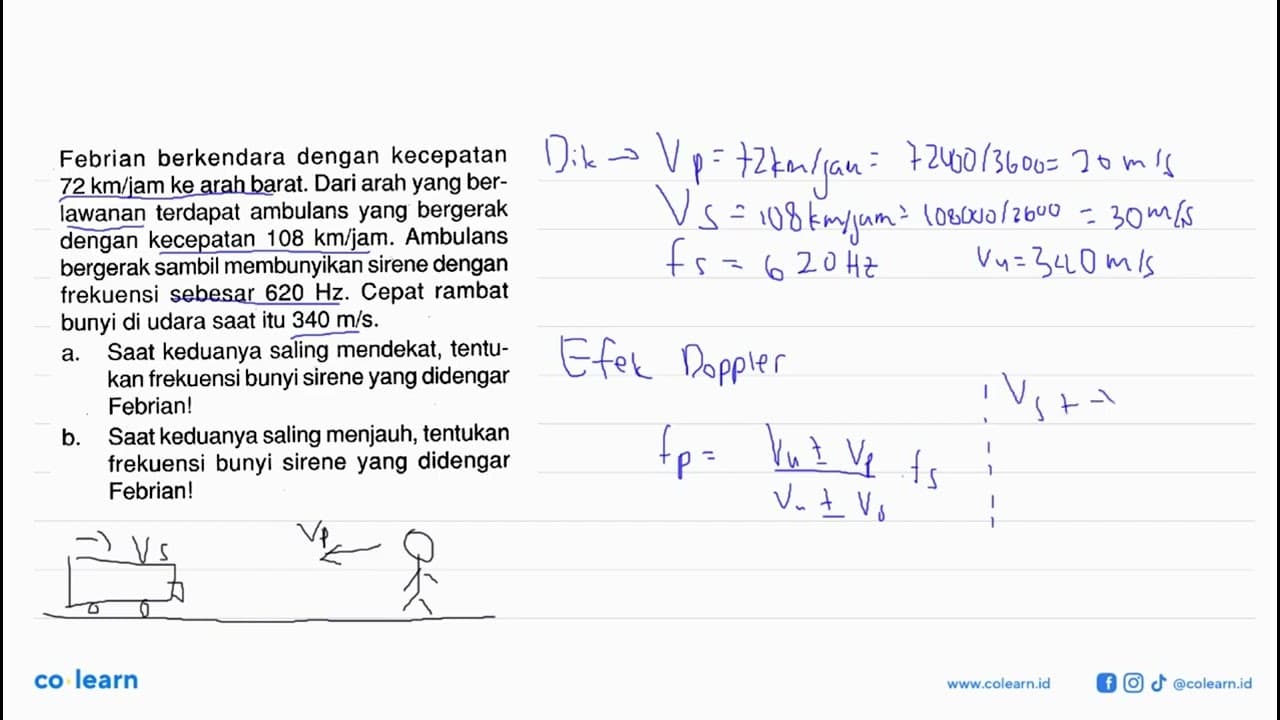 Febrian berkendara dengan kecepatan
72 km/jam ke arah barat. Dari arah yang ber-
lawanan terdapat ambulans yang bergerak
dengan kecepatan 108 km/jam. Ambulans
bergerak sambil membunyikan sirene dengan
frekuensi sebesar 620 Hz. Cepat rambat
bunyi di udara saat itu 340 m/s.
a. Saat keduanya saling mendekat, tentu-
kan frekuensi bunyi sirene yang didengar
Febrian!
b. Saat keduanya saling menjauh, tentukan
frekuensi bunyi sirene yang didengar
Febrian!
→ Vs
Vp
Dik → Vp = 72km/jam = 72000/3600 = 20 m/s
Vs = 108km/jam = 108000/3600 = 30 m/s
fs = 620 Hz Vu = 340 m/s
Efek Doppler
fp = Vu ± Vp / Vu ± Vs . fs
Vs + →
co learn
www.colearn.id @colearn.id